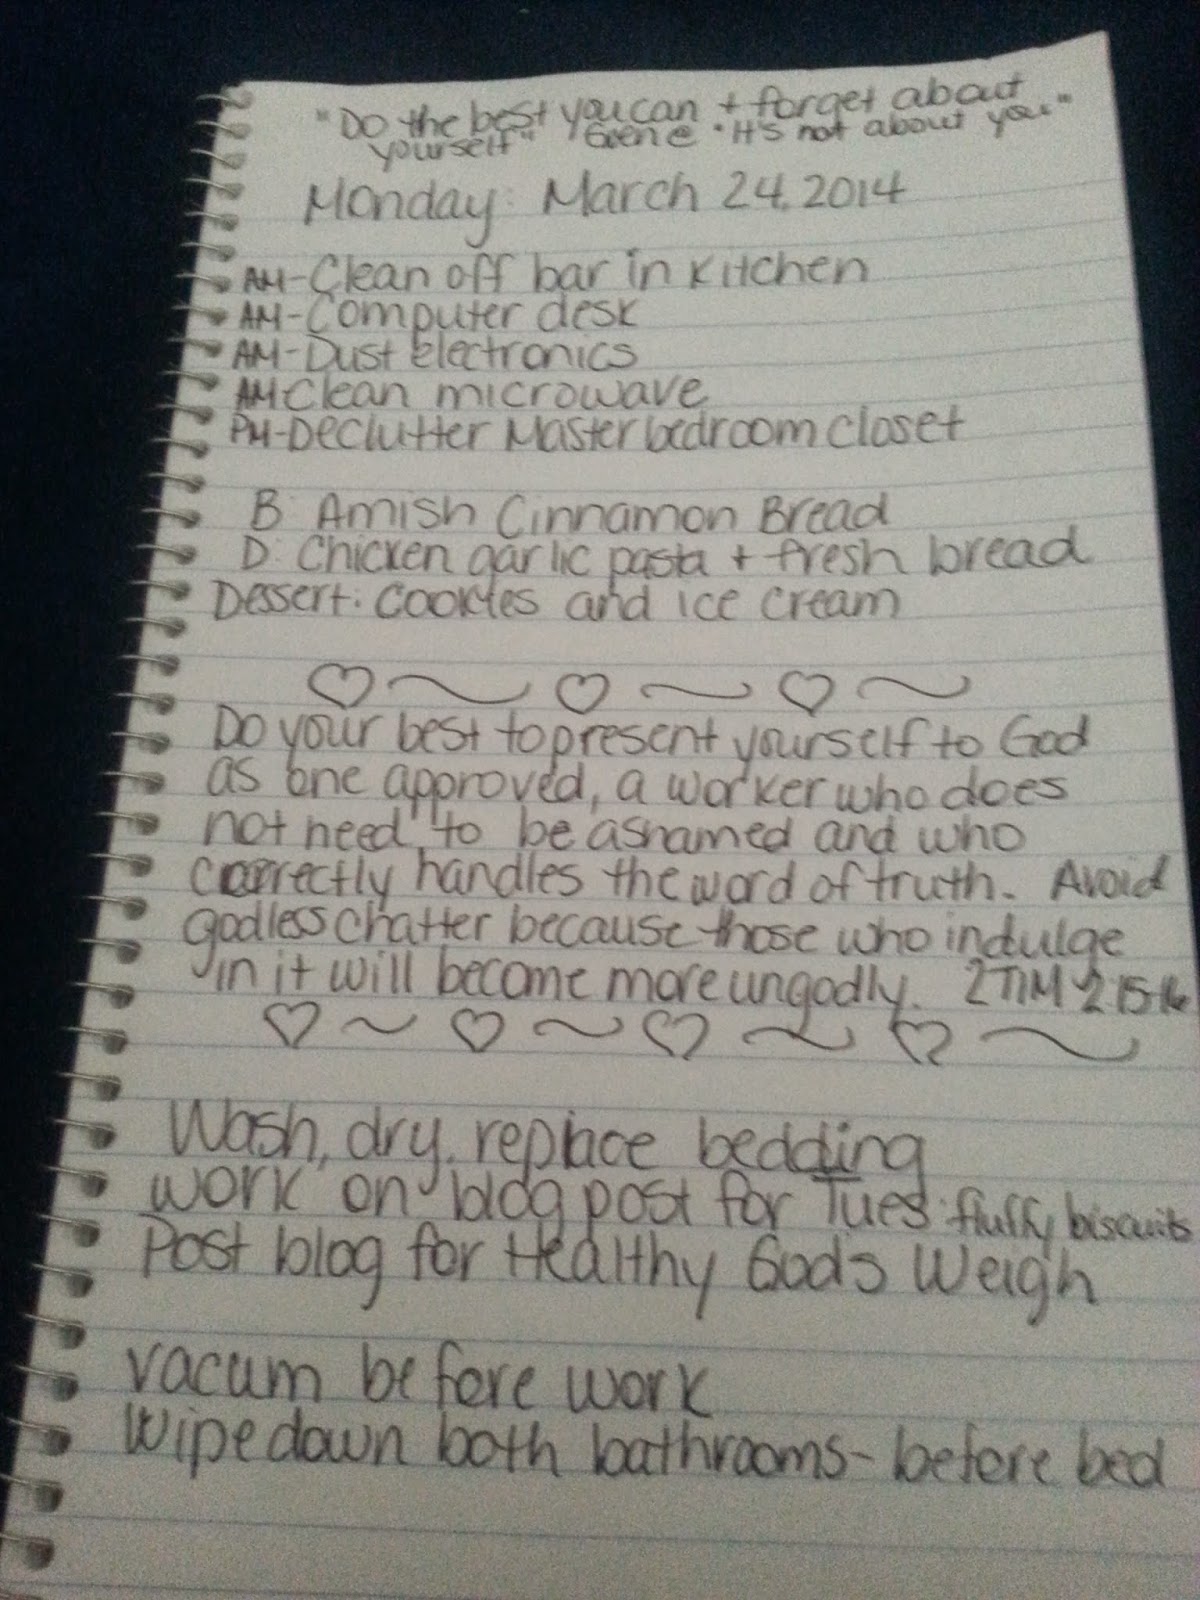 "Do the best you can + forget about
yourself" Gene "It's not about you"
Monday: March 24, 2014
AM-Clean off bar in kitchen
AM-Computer desk
AM-Dust electronics
AM-Clean microwave
PM-Declutter Master bedroom closet
B: Amish Cinnamon Bread
D: Chicken garlic pasta + fresh bread
Dessert: Cookies and ice cream
Do your best to present yourself to God
as one approved, a worker who does
not need to be ashamed and who
correctly handles the word of truth. Avoid
godless chatter because those who indulge
in it will become more ungodly. 2 TIM 2:15-16
Wash, dry, replace bedding
work on blog post for Tues: fluffy biscuits
Post blog for Healthy Gods Weigh
vacum before work
Wipe down both bathrooms- before bed